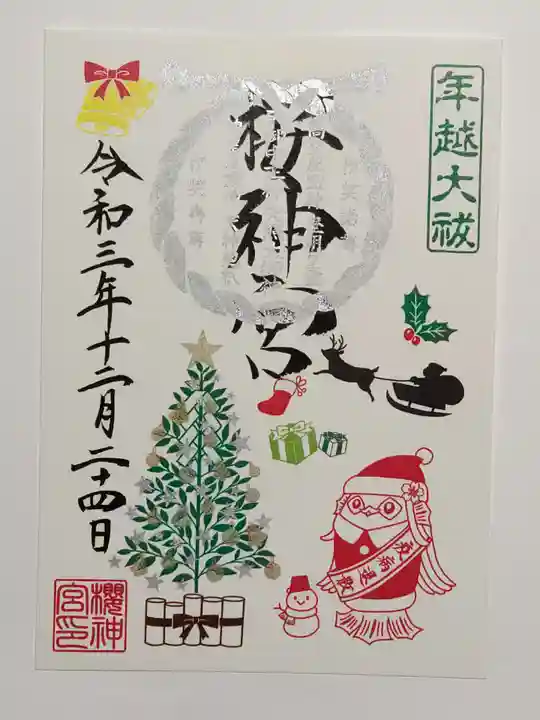 年越大祓
桜神宮
令和三年十二月二十四日
疫病退散
櫻神
宮印